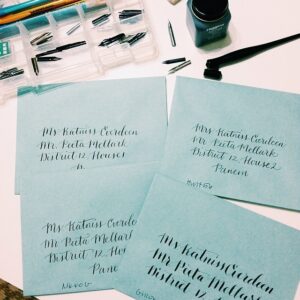 Ms Katniss Everdeen
Mr. Peeta Mellark
District 12 House 1
Mrs Katniss Everdeen
Mr. Peeta Mellark
District 12 House 2
Panem
Ms Katniss Everdeen
Mr Peeta Mellark
District 12 Hou
Pane
Ms Katniss Everdeen
Mr Peeta Mellark
District 12 Hous